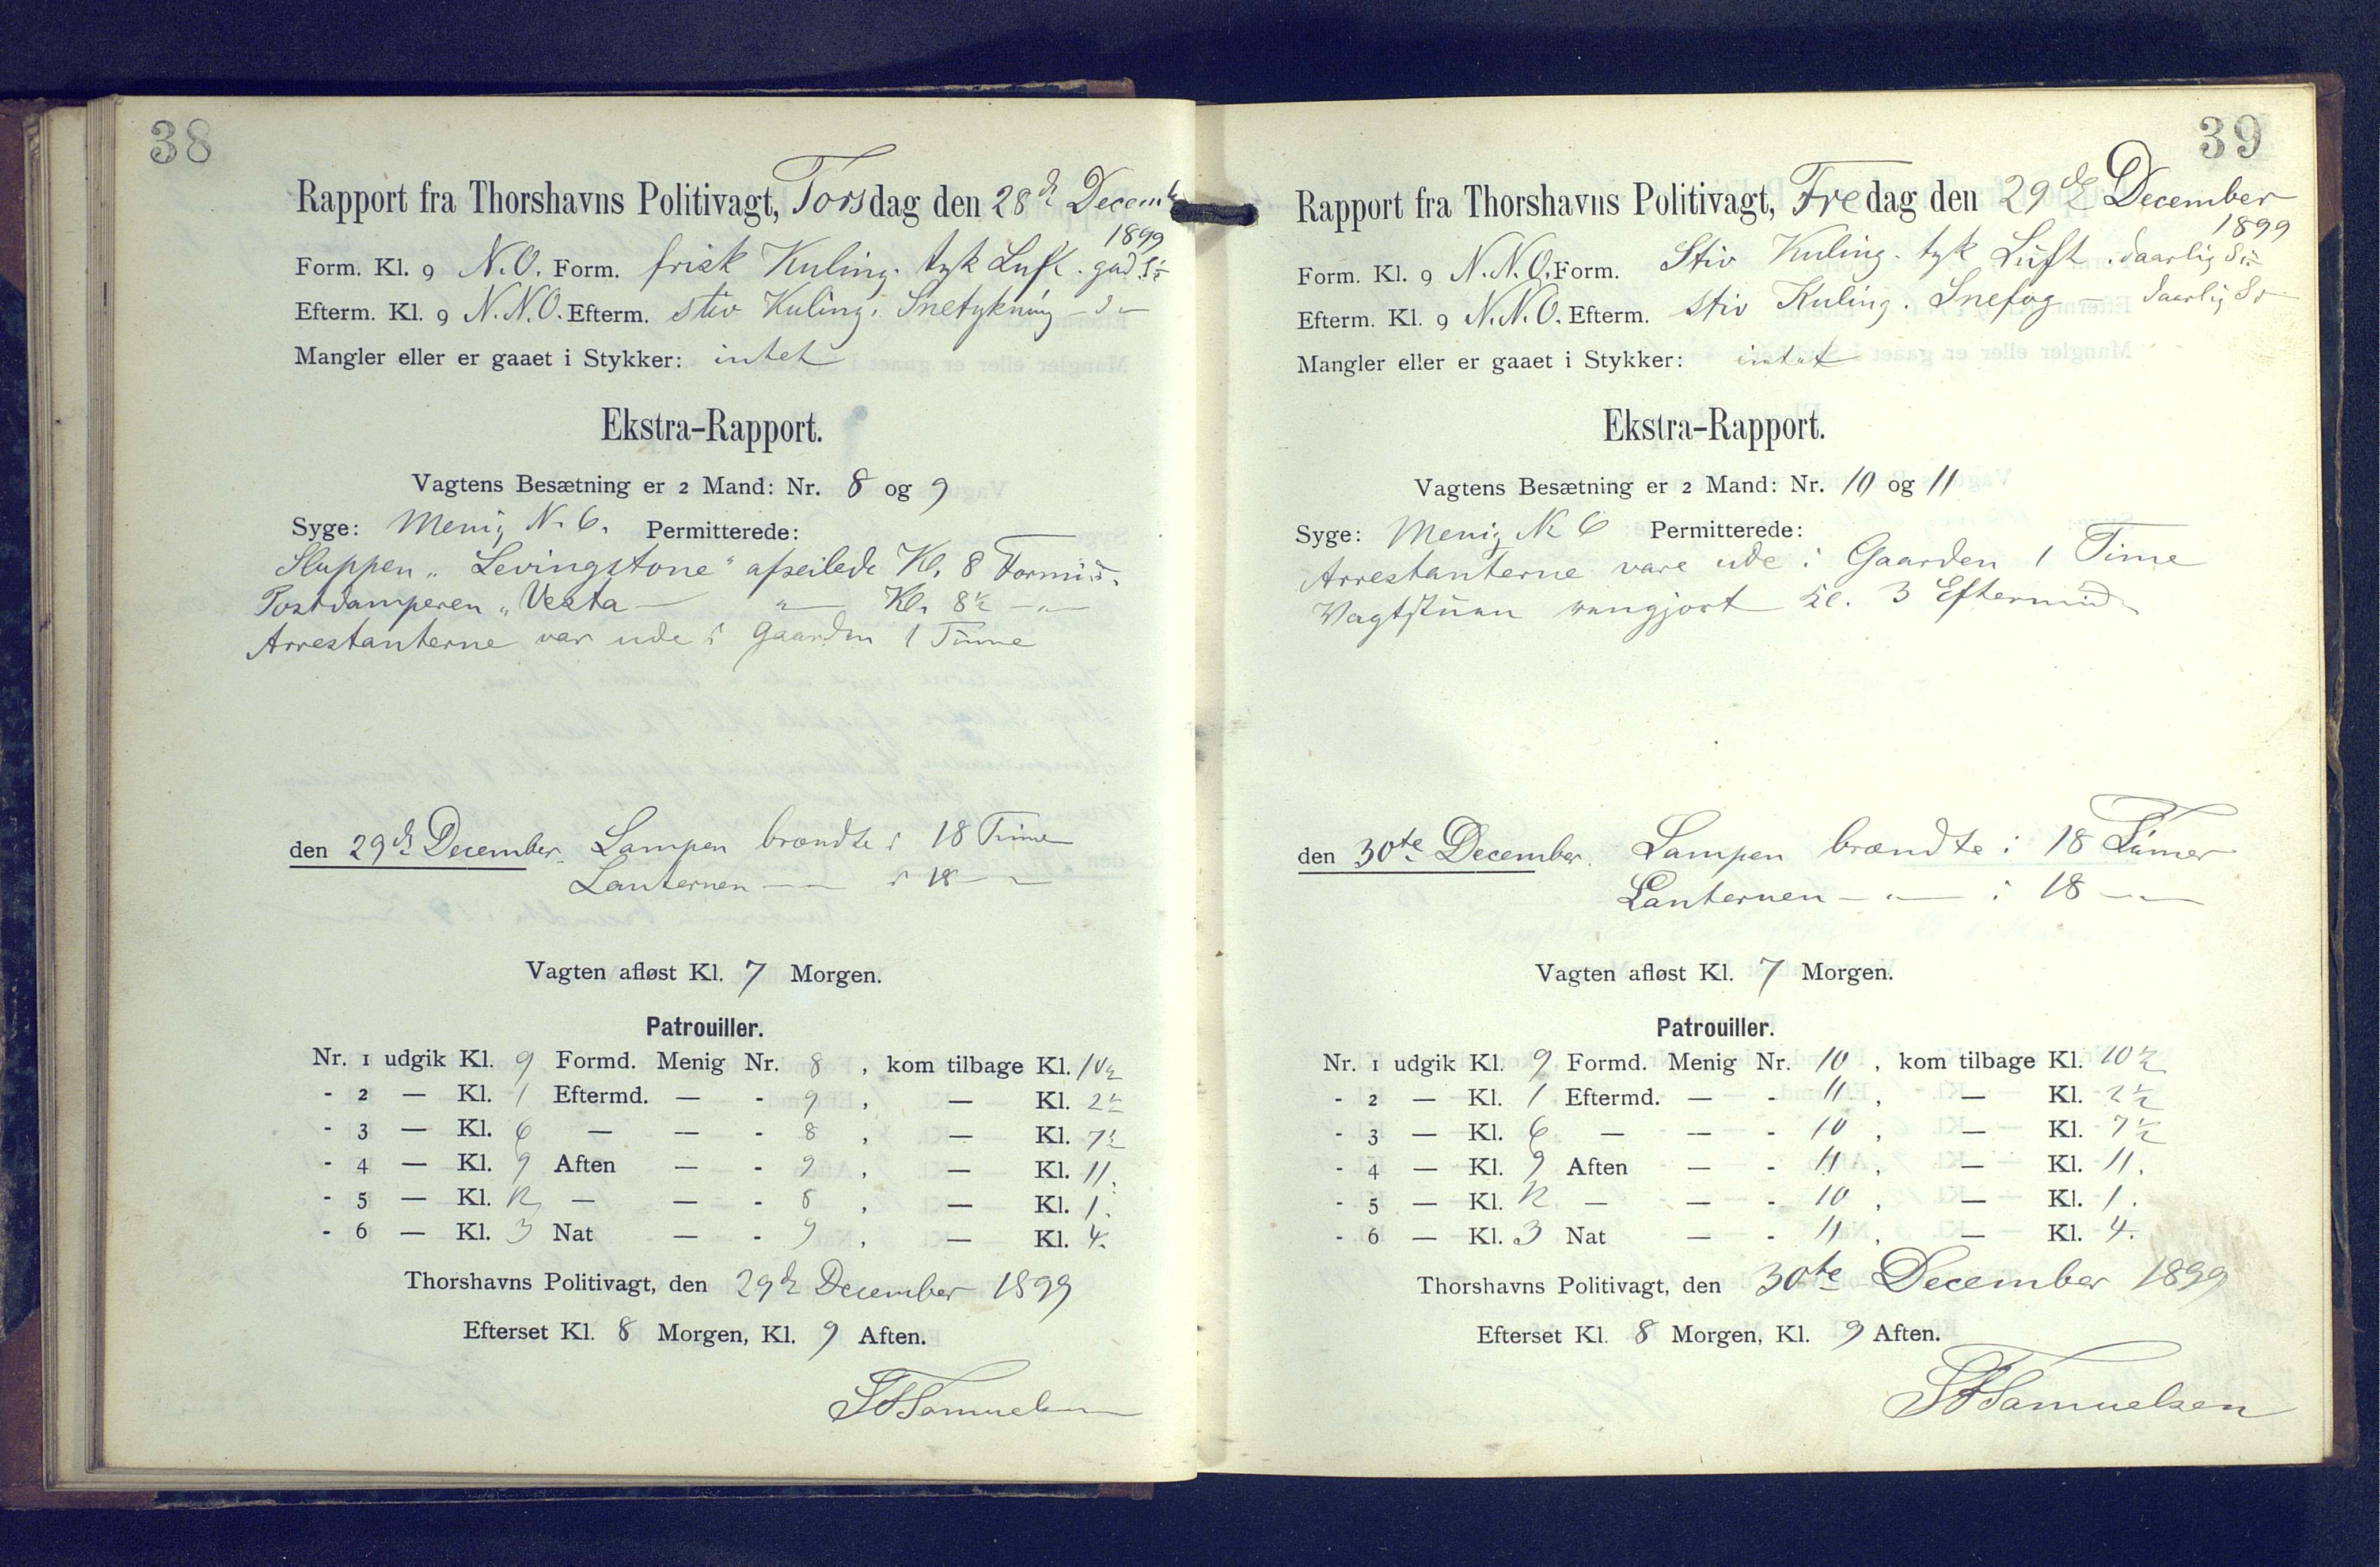 38
Rapport fra Thorshavns Politivagt, Torsdag den 28de Decemb
1899
Form. Kl. 9 N.O. Form. frisk Kuling. tyk Luft. god Sigt
Efterm. Kl. 9 N.N.O. Efterm. stiv Kuling. Snetykning - " -
Mangler eller er gaaet i Stykker: intet
Ekstra-Rapport.
Vagtens Besætning er 2 Mand: Nr. 8 og 9
Syge: Menig Nr 6. Permitterede:
Sluppen „Levingstone" afseilede Kl. 8 Formid.
Postdamperen „Vesta — " — Kl. 8½ — " —
Arrestanterne var ude i Gaarden 1 Time
den 29de December. Lampen brændte i 18 Timer
Lanternen — " — i 18 — " —
Vagten afløst Kl. 7 Morgen.
Patrouiller.
Nr. 1 udgik Kl. 9 Formd. Menig Nr. 8, kom tilbage Kl. 10½
- 2 — Kl. 1 Eftermd. — - 9, — Kl. 2½
- 3 — Kl. 6 — — - 8, — Kl. 7½
- 4 — Kl. 9 Aften — - 9, — Kl. 11.
- 5 — Kl. 12 — — - 8, — Kl. 1.
- 6 — Kl. 3 Nat — - 9, — Kl. 4.
Thorshavns Politivagt, den 29de December 1899
Efterset Kl. 8 Morgen, Kl. 9 Aften.
Samuelsen
39
Rapport fra Thorshavns Politivagt, Fredag den 29de December
1899
Form. Kl. 9 N.N.O. Form. Stiv Kuling. tyk Luft. daarlig
Efterm. Kl. 9 N.N.O. Efterm. stiv Kuling. Snefog — daarlig
Mangler eller er gaaet i Stykker: intet
Ekstra-Rapport.
Vagtens Besætning er 2 Mand: Nr. 10 og 11
Syge: Menig Nr 6 Permitterede:
Arrestanterne vare ude i Gaarden 1 Time
Vagtstuen rengjort Kl. 3 Eftermid
den 30te December. Lampen brændte i 18 Timer
Lanternen — " — i 18 — " —
Vagten afløst Kl. 7 Morgen.
Patrouiller.
Nr. 1 udgik Kl. 9 Formd. Menig Nr. 10, kom tilbage Kl. 10½
- 2 — Kl. 1 Eftermd. — - 11, — Kl. 2½
- 3 — Kl. 6 — — - 10, — Kl. 7½
- 4 — Kl. 9 Aften — - 11, — Kl. 11.
- 5 — Kl. 12 — — - 10, — Kl. 1.
- 6 — Kl. 3 Nat — - 11, — Kl. 4.
Thorshavns Politivagt, den 30te December 1899
Efterset Kl. 8 Morgen, Kl. 9 Aften.
Samuelsen